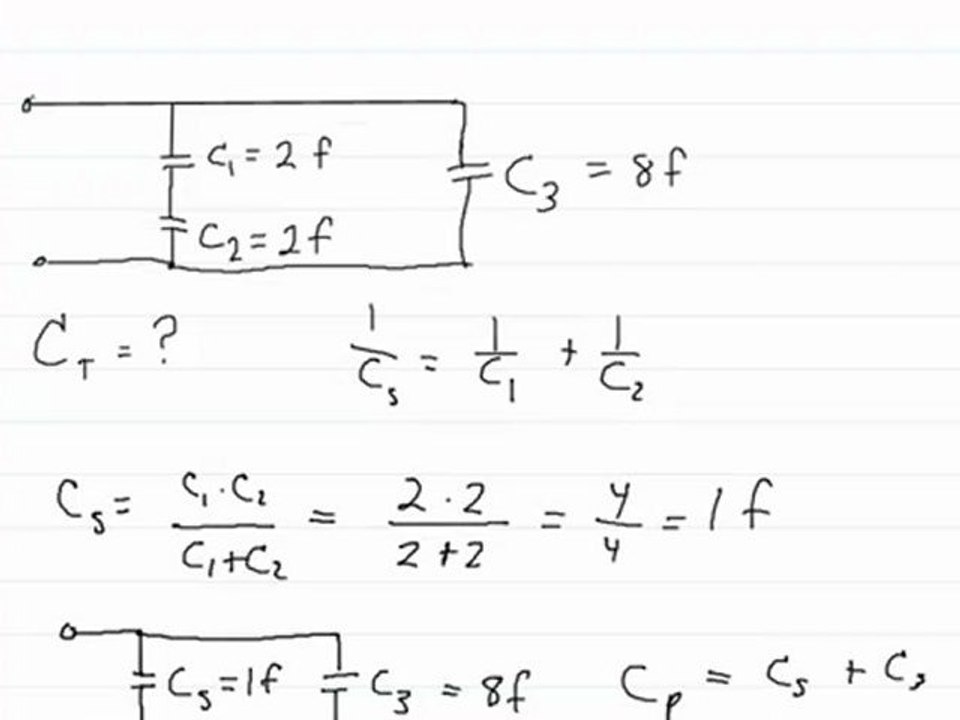 C₁ = 2 f
C₃ = 8f
C₂ = 2f
C_T = ?
1/C_s = 1/C₁ + 1/C₂
C_s = C₁·C₂/C₁+C₂ = 2·2/2+2 = 4/4 = 1 f
C_s = 1f
C₃ = 8f
C_p = C_s + C₃